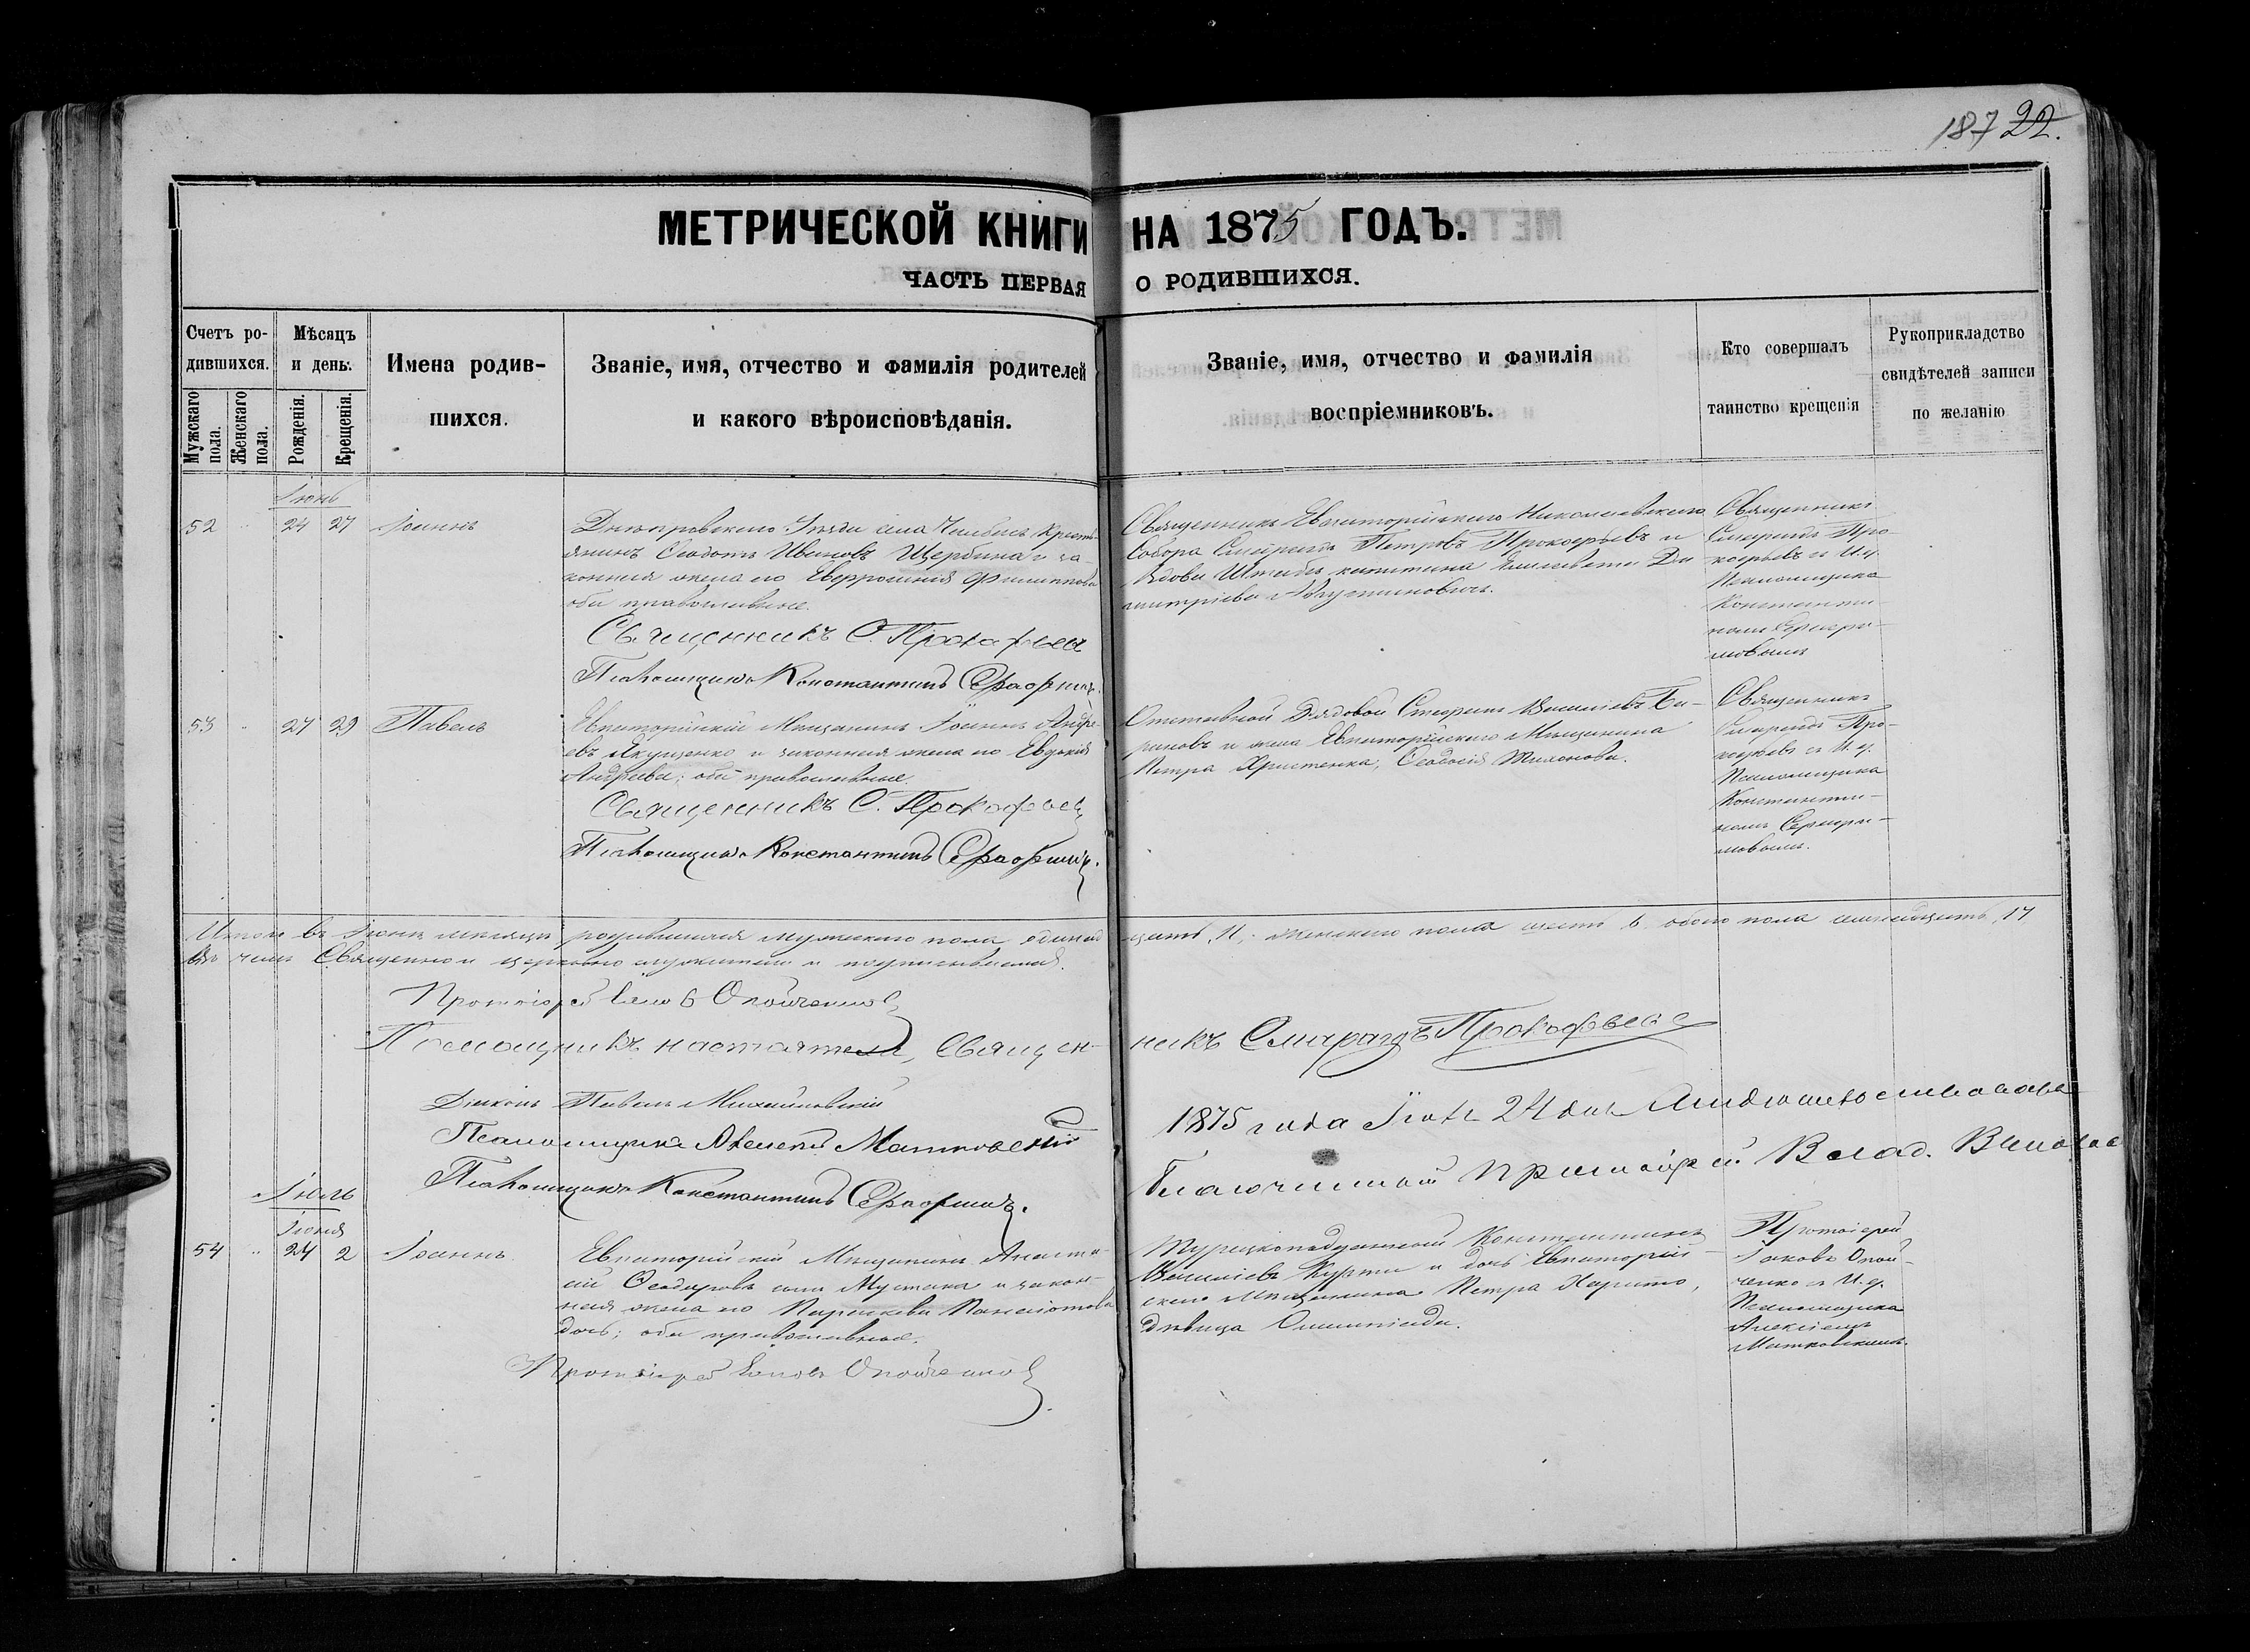 187 22.
МЕТРИЧЕСКОЙ КНИГИ НА 1875 ГОДЪ.
ЧАСТЬ ПЕРВАЯ О РОДИВШИХСЯ.
Счетъ ро-
дившихся.
Мужскаго пола.
Женскаго пола.
Мѣсяцъ
и день.
Рожденія.
Крещенія.
Имена родив-
шихся.
Званіе, имя, отчество и фамилія родителей
и какого вѣроисповѣданія.
Званіе, имя, отчество и фамилія
воспріемниковъ.
Кто совершалъ
таинство крещенія
Рукоприкладство
свидѣтелей записи
по желанію
Іюнь
52 " 24 27 Іоаннъ
Днепровскаго Уезда села Чалбасъ Кресть-
янинъ Ѳеодотъ Ивановъ Щербина и за-
конная жена его Евфросинія Филиппова
оба православные.
Священникъ С. Прокофьевъ
Псаломщикъ Константинъ Серафимовъ.
Священникъ Евпаторійскаго Николаевскаго
Собора Смарагдъ Петровъ Прокофьевъ и
Вдова Штабсъ капитана Елисавета Ди
митріева Августиновичъ.
Священникъ
Смарагдъ Про-
кофьевъ съ И.д.
Псаломщика
Константи-
номъ Серафи-
мовымъ
53 " 27 29 Павелъ
Евпаторійскій Мещанинъ Іоаннъ Андре-
евъ Якущенко и законная жена его Евдокія
Андреева; оба православные.
Священникъ С. Прокофьевъ
Псаломщикъ Константинъ Серафимовъ.
Отставной Рядовой Стефанъ Василіевъ Ба-
риновъ и жена Евпаторійскаго Мещанина
Петра Христенка, Ѳеодосія Тихонова.
Священникъ
Смарагдъ Про-
кофьевъ съ И.д.
Псаломщика
Константи-
номъ Серафи-
мовымъ.
Итого въ Іюнѣ мѣсяцѣ родившихся мужескаго пола одинад цать 11, женскаго пола шесть 6 обоего пола семнадцать, 17
Въ чемъ Священно и церковно служители и подписываемся.
Протоіерей Іаковъ Опойченко
Помощникъ настоятеля, Священ- никъ Смарагдъ Прокофьевъ
Діаконъ Павелъ Михайловскій
Псаломщикъ Алексій Матковскій
Псаломщикъ Константинъ Серафимовъ.
1875 года Іюля 24 дня
Благочинный Протоіерей Влад.
Іюль
Іюня
54 " 24 2 Іоаннъ
Евпаторійскій Мещанинъ Анаста-
сій Ѳеодоровъ сынъ Мустака и закон-
ная жена его Параскева Панаіотова
дочь; оба православные.
Протоіерей Іаковъ Опойченко
Турецкоподданный Константинъ
Василіевъ Курти и дочь Евпаторій-
скаго Мещанина Петра Харито,
дѣвица Олимпіада.
Протоіерей
Іаковъ Опой-
ченко съ И.д.
Псаломщика
Алексіемъ
Матковскимъ.